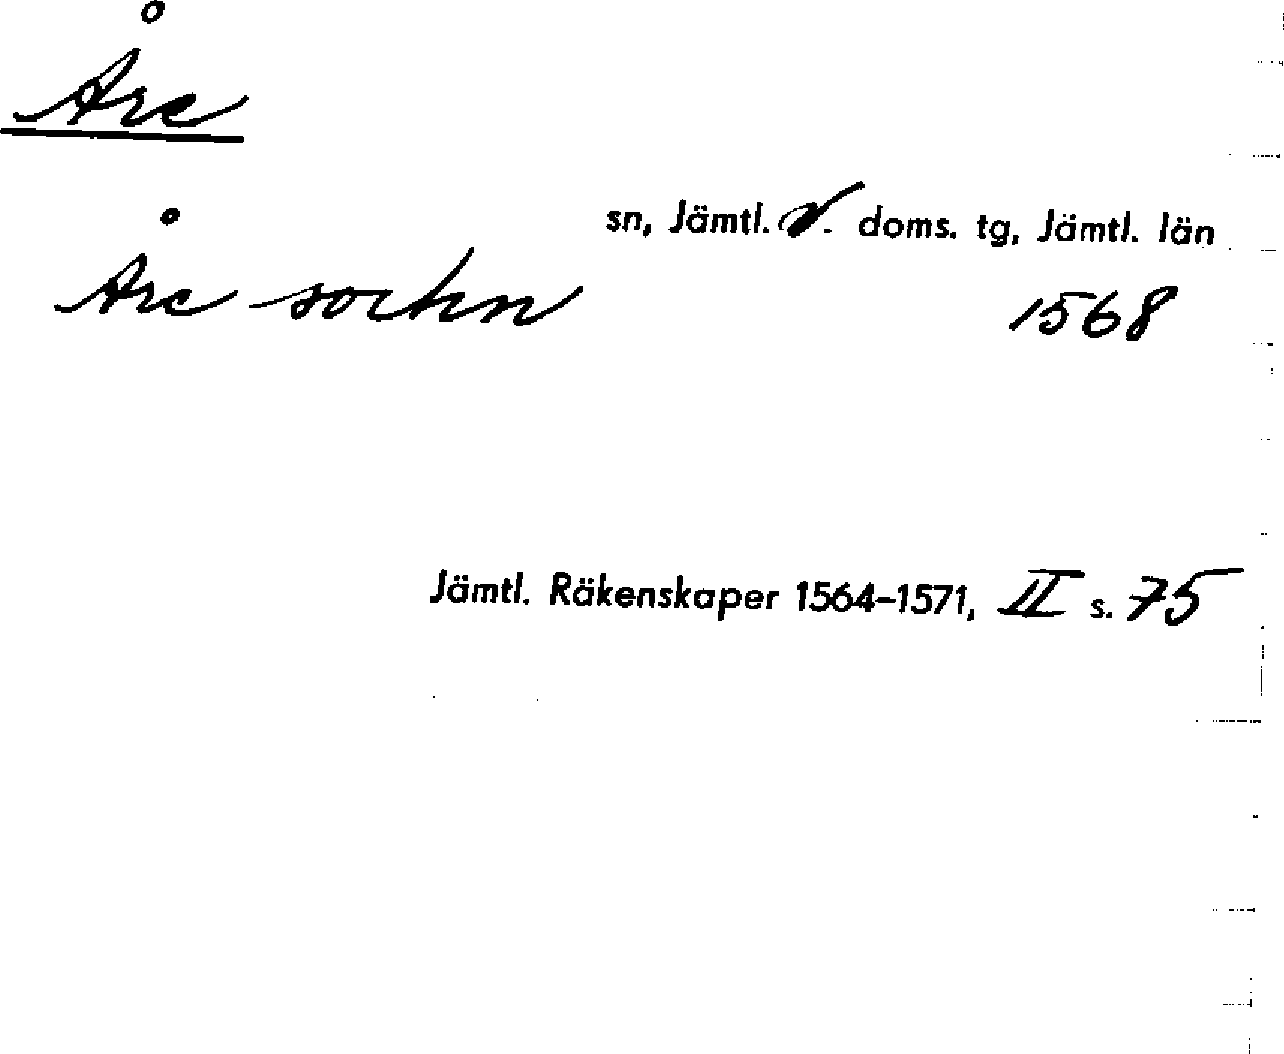 Åre
sn, Jämtl. v. doms. tg, Jämtl. län
Åre sockn 1568
Jämtl. Räkenskaper 1564-1571, II s. 75